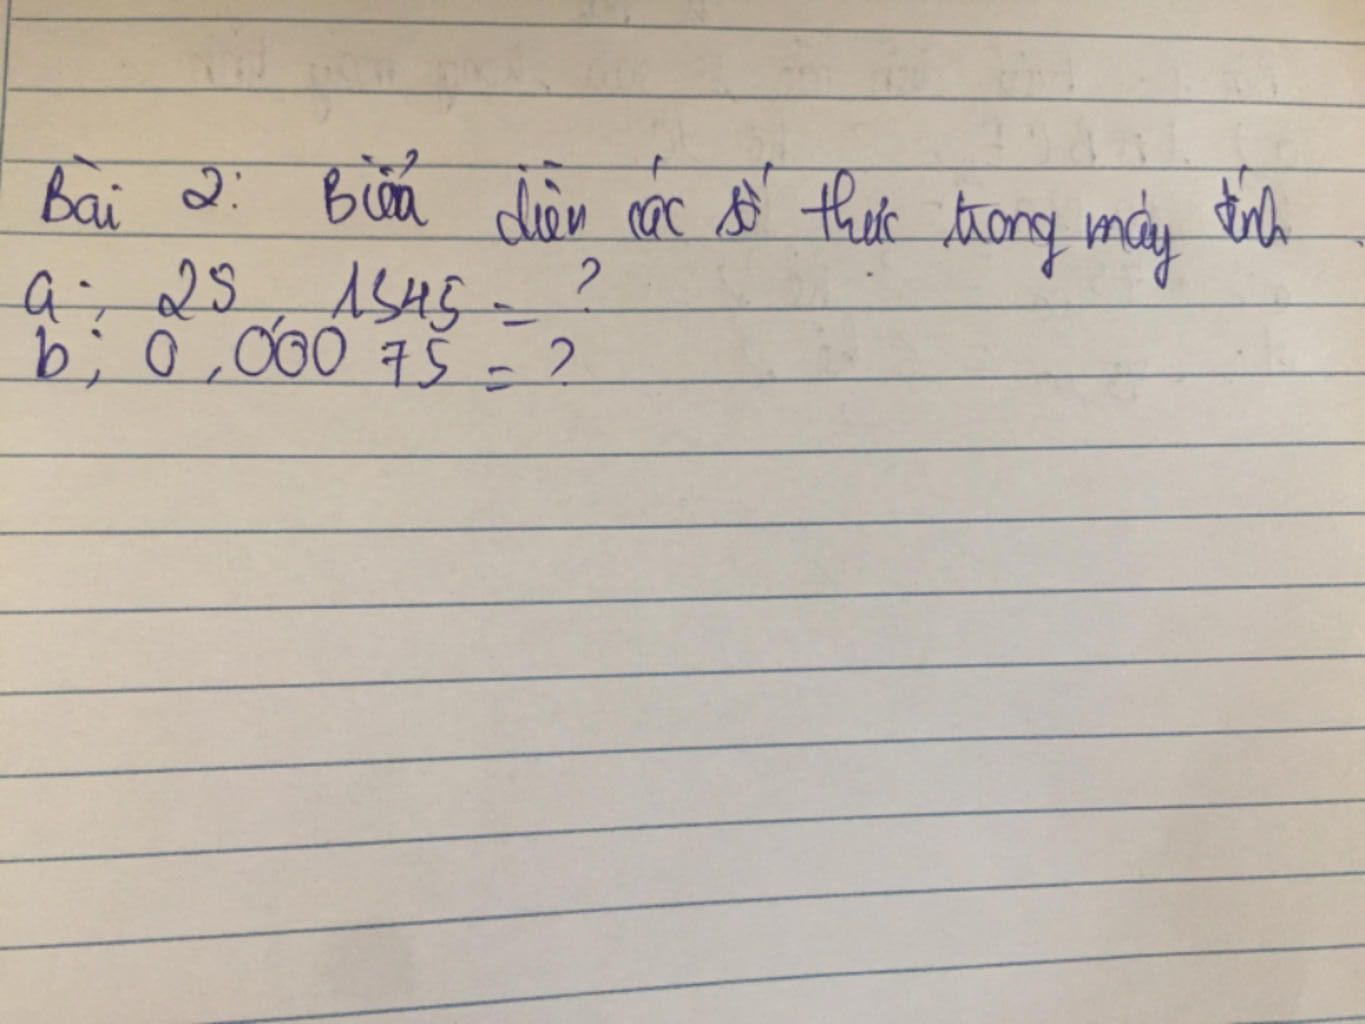 Bài 2: Biểu diễn các số thực trong máy tính.
a; 25, 1545 = ?
b; 0,000 75 = ?